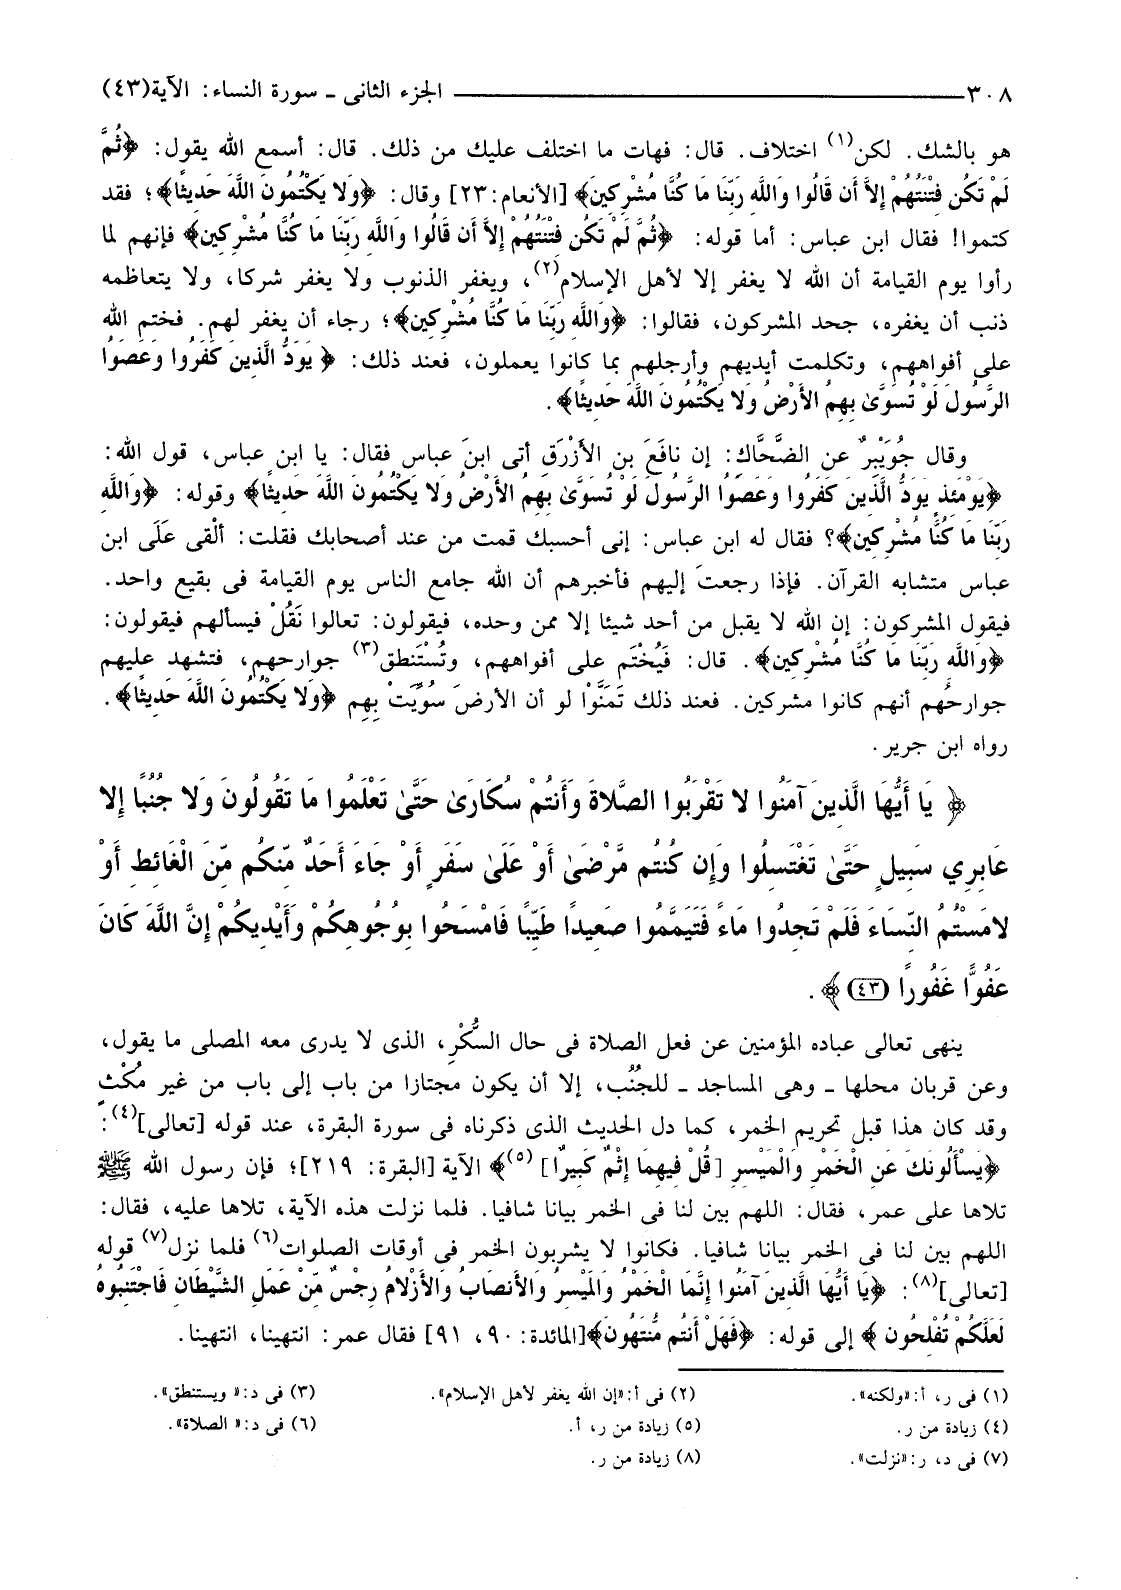 ٣٠٨ الجزء الثانى ـ سورة النساء: الآية(٤٣)
هو بالشك. لكن(١) اختلاف. قال: فهات ما اختلف عليك من ذلك. قال: أسمع الله يقول: ﴿ثُمَّ
لَمْ تَكُن فِتْنَتُهُمْ إِلاَّ أَن قَالُوا وَاللَّهِ رَبِّنَا مَا كُنَّا مُشْرِكِينَ﴾ [الأنعام:٢٣] وقال: ﴿وَلا يَكْتُمُونَ اللَّهَ حَدِيثًا﴾؛ فقد
كتموا! فقال ابن عباس: أما قوله: ﴿ثُمَّ لَمْ تَكُن فِتْنَتُهُمْ إِلاَّ أَن قَالُوا وَاللَّهِ رَبِّنَا مَا كُنَّا مُشْرِكِينَ﴾ فإنهم لما
رأوا يوم القيامة أن الله لا يغفر إلا لأهل الإسلام(٢)، ويغفر الذنوب ولا يغفر شركا، ولا يتعاظمه
ذنب أن يغفره، جحد المشركون، فقالوا: ﴿وَاللَّهِ رَبِّنَا مَا كُنَّا مُشْرِكِينَ﴾؛ رجاء أن يغفر لهم. فختم الله
على أفواههم، وتكلمت أيديهم وأرجلهم بما كانوا يعملون، فعند ذلك: ﴿ يَوَدُّ الَّذِينَ كَفَرُوا وَعَصَوُا
الرَّسُولَ لَوْ تُسَوَّىٰ بِهِمُ الأَرْضُ وَلا يَكْتُمُونَ اللَّهَ حَدِيثًا﴾.
وقال جُوَيْبِرٌ عن الضَّحَّاك: إن نافَعَ بن الأزْرَق أتى ابنَ عباس فقال: يا ابن عباس، قول الله:
﴿يَوْمَئِذٍ يَوَدُّ الَّذِينَ كَفَرُوا وَعَصَوُا الرَّسُولَ لَوْ تُسَوَّىٰ بِهِمُ الأَرْضُ وَلا يَكْتُمُونَ اللَّهَ حَدِيثًا﴾ وقوله: ﴿وَاللَّهِ
رَبِّنَا مَا كُنَّا مُشْرِكِينَ﴾؟ فقال له ابن عباس: إنى أحسبك قمت من عند أصحابك فقلت: ألْقى عَلَى ابن
عباس متشابه القرآن. فإذا رجعت إليهم فأخبرهم أن الله جامع الناس يوم القيامة فى بقيع واحد.
فيقول المشركون: إن الله لا يقبل من أحد شيئا إلا ممن وحده، فيقولون: تعالوا نَقُلْ فيسألهم فيقولون:
﴿وَاللَّهِ رَبِّنَا مَا كُنَّا مُشْرِكِينَ﴾. قال: فَيُخْتَم على أفواههم، وتُسْتَنطق(٣) جوارحهم، فتشهد عليهم
جوارحُهم أنهم كانوا مشركين. فعند ذلك تَمَنَّوْا لو أن الأرضَ سُوِّيَتْ بِهِم ﴿وَلا يَكْتُمُونَ اللَّهَ حَدِيثًا﴾.
رواه ابن جرير.
﴿ يَا أَيُّهَا الَّذِينَ آمَنُوا لا تَقْرَبُوا الصَّلاةَ وَأَنتُمْ سُكَارَىٰ حَتَّىٰ تَعْلَمُوا مَا تَقُولُونَ وَلا جُنُبًا إِلا
عَابِرِي سَبِيلٍ حَتَّىٰ تَغْتَسِلُوا وَإِن كُنتُم مَّرْضَىٰ أَوْ عَلَىٰ سَفَرٍ أَوْ جَاءَ أَحَدٌ مِّنكُم مِّنَ الْغَائِطِ أَوْ
لامَسْتُمُ النِّسَاءَ فَلَمْ تَجِدُوا مَاءً فَتَيَمَّمُوا صَعِيدًا طَيِّبًا فَامْسَحُوا بِوُجُوهِكُمْ وَأَيْدِيكُمْ إِنَّ اللَّهَ كَانَ
عَفُوًّا غَفُورًا (٤٣)﴾.
ينهى تعالى عباده المؤمنين عن فعل الصلاة فى حال السُّكْرِ، الذى لا يدرى معه المصلى ما يقول،
وعن قربان محلها ـ وهى المساجد ـ للجُنُب، إلا أن يكون مجتازا من باب إلى باب من غير مُكْثٍ
وقد كان هذا قبل تحريم الخمر، كما دل الحديث الذى ذكرناه فى سورة البقرة، عند قوله [تعالى](٤):
﴿يَسْأَلُونَكَ عَنِ الْخَمْرِ وَالْمَيْسِرِ [قُلْ فِيهِمَا إِثْمٌ كَبِيرٌ](٥)﴾ الآية [البقرة: ٢١٩]؛ فإن رسول الله ﷺ
تلاها على عمر، فقال: اللهم بين لنا فى الخمر بيانا شافيا. فلما نزلت هذه الآية، تلاها عليه، فقال:
اللهم بين لنا فى الخمر بيانا شافيا. فكانوا لا يشربون الخمر فى أوقات الصلوات(٦) فلما نزل(٧) قوله
[تعالى](٨): ﴿يَا أَيُّهَا الَّذِينَ آمَنُوا إِنَّمَا الْخَمْرُ وَالْمَيْسِرُ وَالأَنصَابُ وَالأَزْلامُ رِجْسٌ مِّنْ عَمَلِ الشَّيْطَانِ فَاجْتَنِبُوهُ
لَعَلَّكُمْ تُفْلِحُونَ ﴾ إلى قوله: ﴿فَهَلْ أَنتُم مُّنتَهُونَ﴾[المائدة:٩٠، ٩١] فقال عمر: انتهينا، انتهينا.
(١) فى ر، أ:«ولكنه». (٢) فى أ:«إن الله يغفر لأهل الإسلام». (٣) فى د:« ويستنطق».
(٤) زيادة من ر. (٥) زيادة من ر، أ. (٦) فى د:« الصلاة».
(٧) فى د، ر:«نزلت». (٨) زيادة من ر.